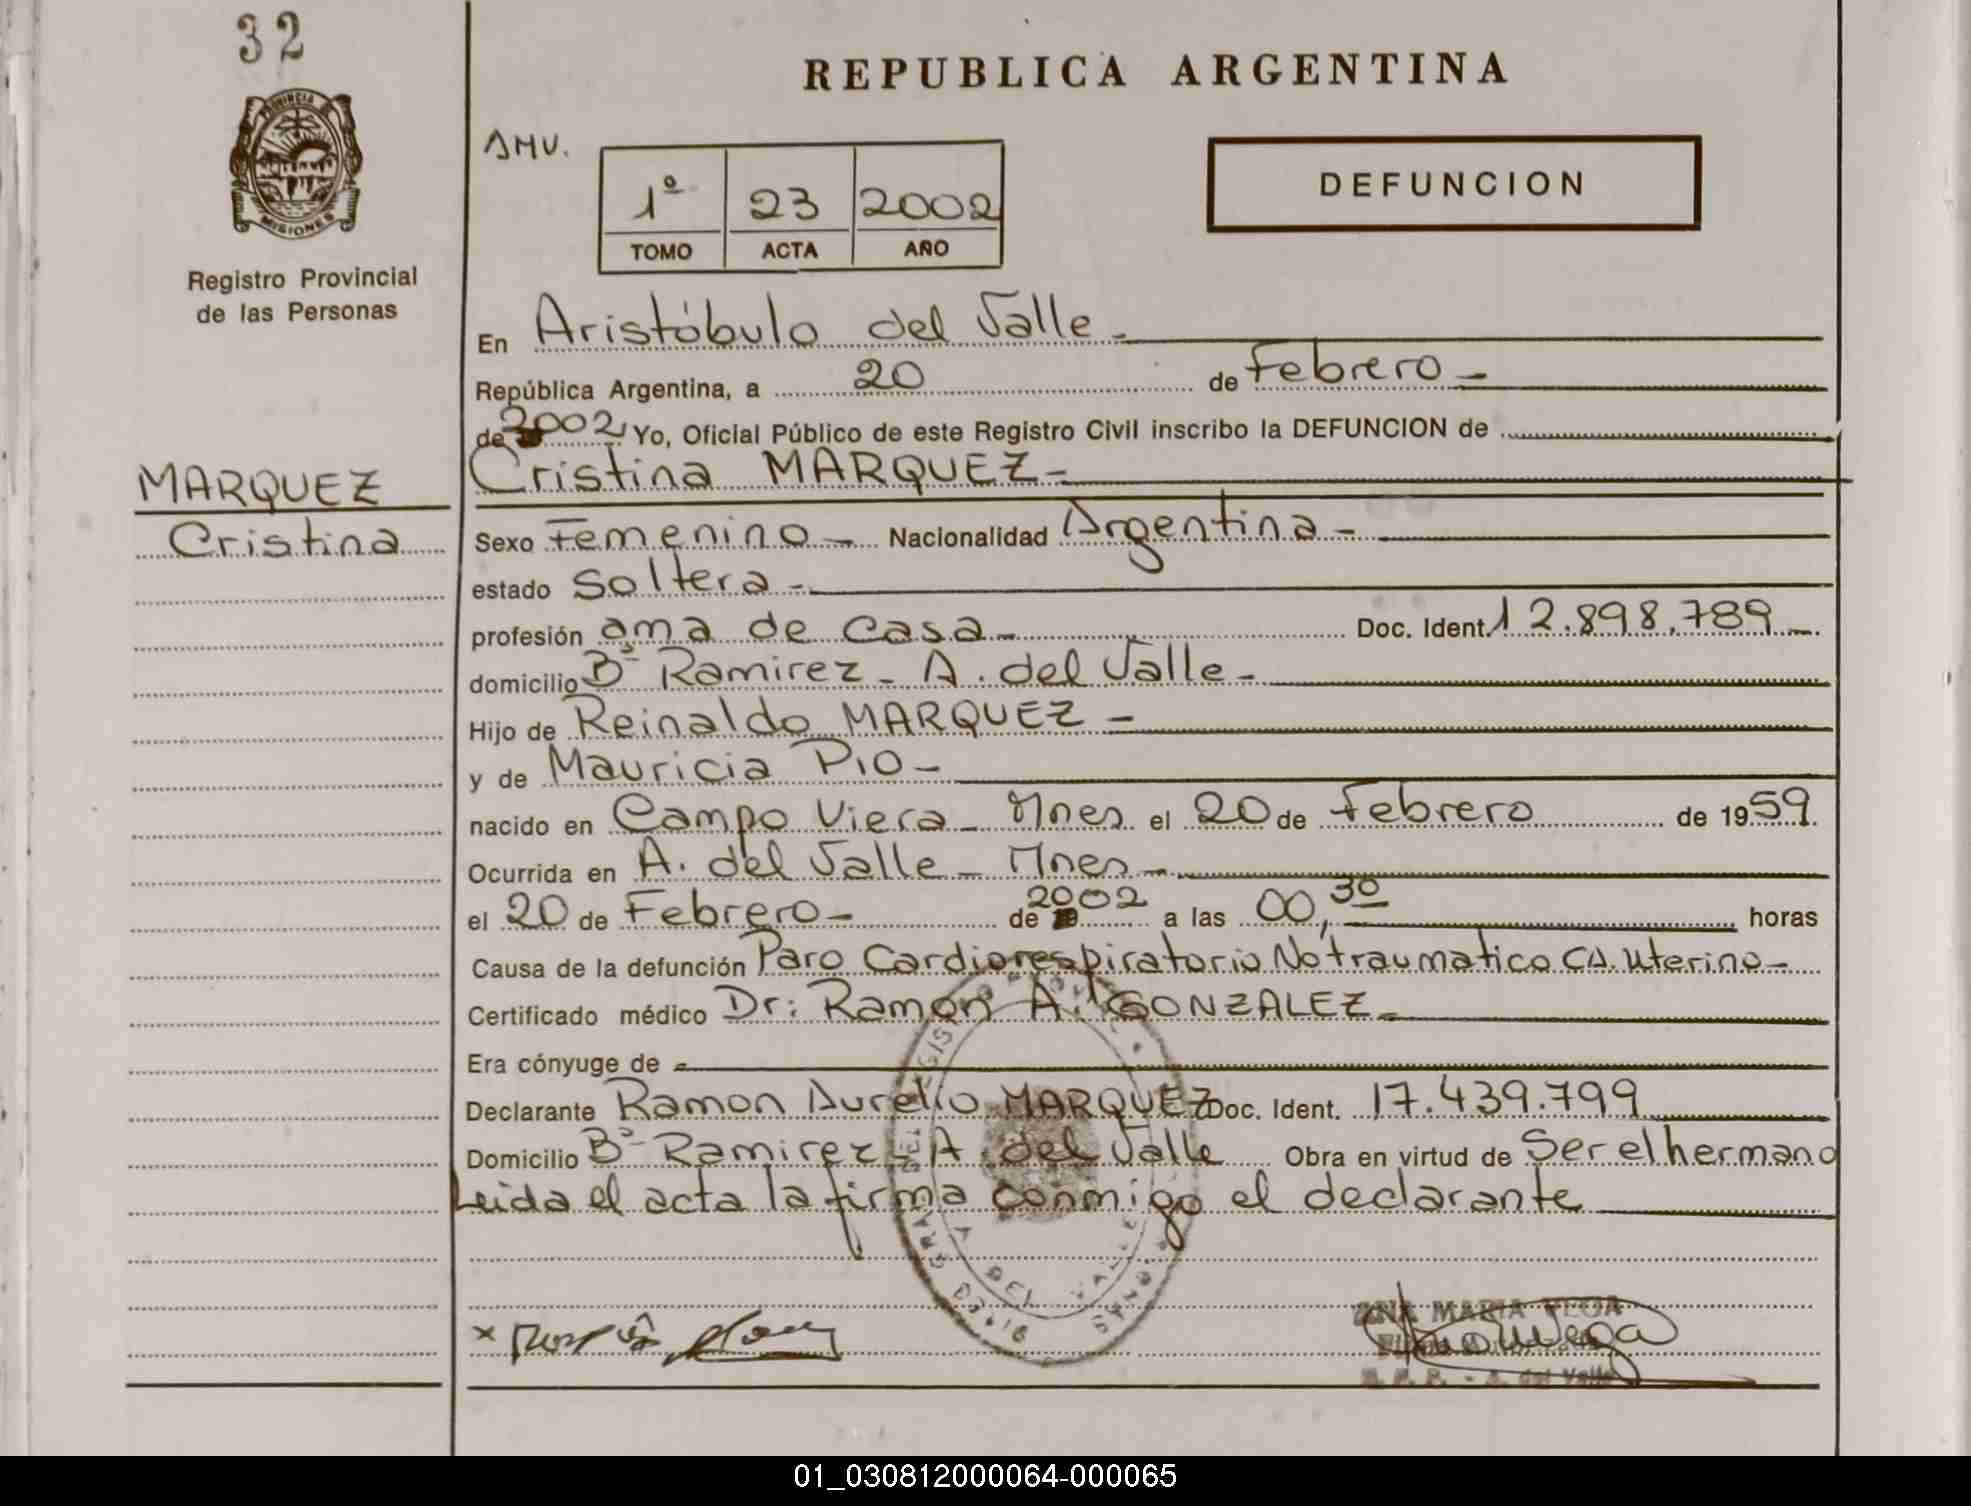 32
PROVINCIA DE
MISIONES
Registro Provincial
de las Personas
REPUBLICA ARGENTINA
AMV.
1º 23 2002
TOMO ACTA AÑO
DEFUNCION
En Aristóbulo del Valle -
República Argentina, a 20 de Febrero -
de 2002 Yo, Oficial Público de este Registro Civil inscribo la DEFUNCION de
Cristina MARQUEZ -
MARQUEZ
Cristina
Sexo Femenino - Nacionalidad Argentina -
estado Soltera -
profesión ama de casa - Doc. Ident. 12.898.789 -
domicilio Bº Ramirez - A. del Valle -
Hijo de Reinaldo MARQUEZ -
y de Mauricia PIO -
nacido en Campo Viera - Mnes el 20 de Febrero de 1959.
Ocurrida en A. del Valle - Mnes -
el 20 de Febrero - de 2002 a las 00,30 horas
Causa de la defunción Paro Cardiorespiratorio No traumatico CA. Uterino -
Certificado médico Dr: Ramon A. GONZALEZ -
Era cónyuge de -
Declarante Ramon Aurelio MARQUEZ Doc. Ident. 17.439.799
Domicilio Bº Ramirez - A del Valle Obra en virtud de Ser el hermano
Leida el acta la firma conmigo el declarante
x
ANA MARIA VEGA
R. P. P. - A. del Valle
01_030812000064-000065